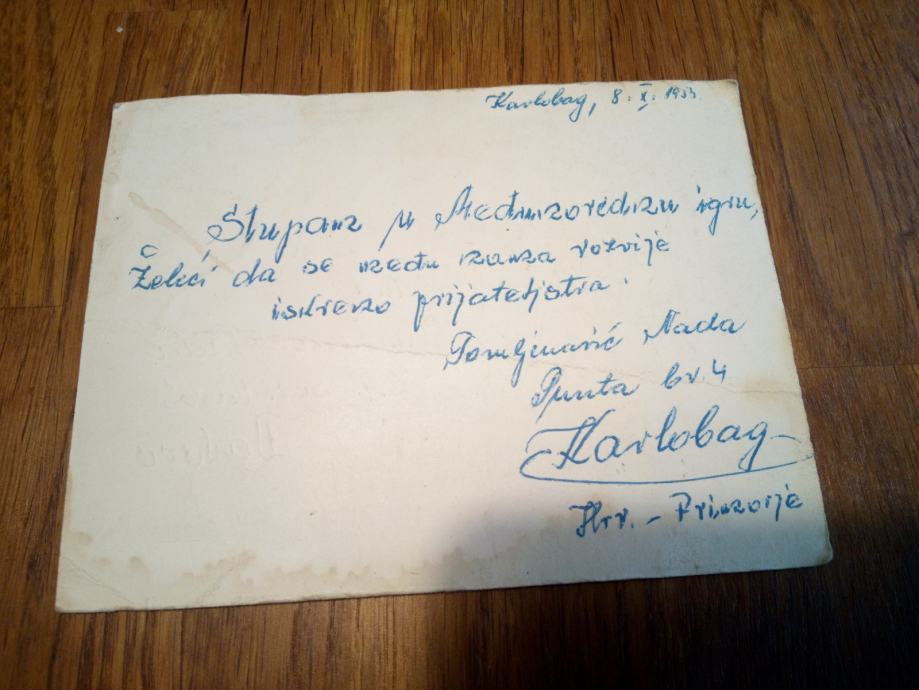 Karlobag, 8. X. 1953.
Stupam u Međunarodnu igru,
Želeći da se među nama razvije
iskreno prijateljstva.
Tomljenović Nada
Punta br. 4
Karlobag
Hrv. - Primorje